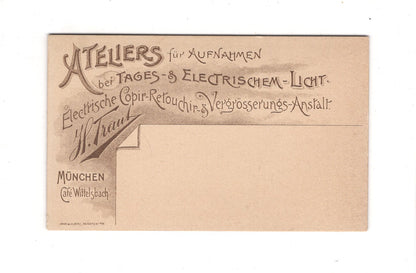 ATELIERS für AUFNAHMEN
bei TAGES- & ELECTRISCHEM-LICHT.
Electrische Copir-Retouchir-& Vergrösserungs-Anstalt
W. Traut
MÜNCHEN
Café Wittelsbach